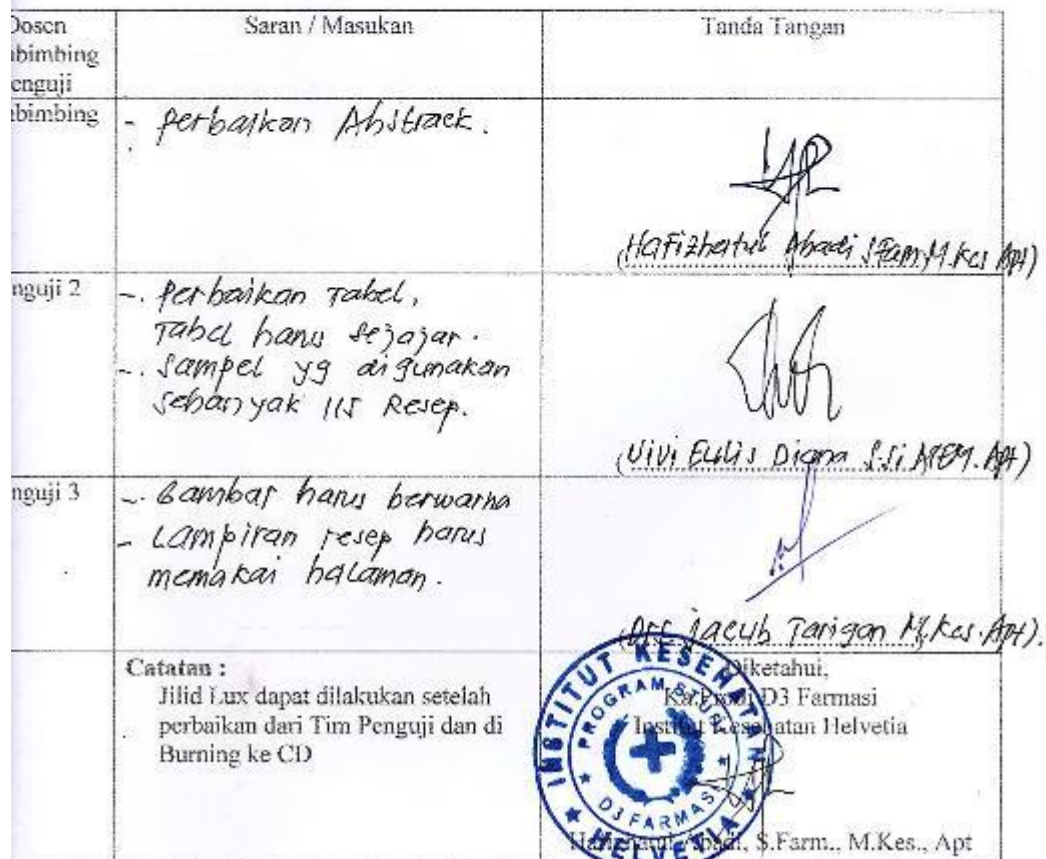 Dosen
bimbing
enguji
Saran / Masukan
Tanda Tangan
bimbing
- Perbaikan Abstrack.
(Hafizhatul Abadi S.Farm, M.Kes Apt)
nguji 2
-. Perbaikan Tabel,
Tabel harus sejajar.
-. Sampel yg digunakan
Sebanyak 115 Resep.
(Vivi Eulis Diana S.Si MEM. Apt)
nguji 3
-. Gambar harus berwarna
- Lampiran resep harus
memakai halaman.
(Drs. Jacub Tarigan M.Kes. Apt).
Catatan :
Jilid Lux dapat dilakukan setelah
perbaikan dari Tim Penguji dan di
Burning ke CD
Diketahui,
Ka.Prodi D3 Farmasi
Institut Kesehatan Helvetia
INSTITUT KESEHATAN
HELVETIA
PROGRAM STUDI
D3 FARMASI
Hafizhatul Abadi, S.Farm., M.Kes., Apt